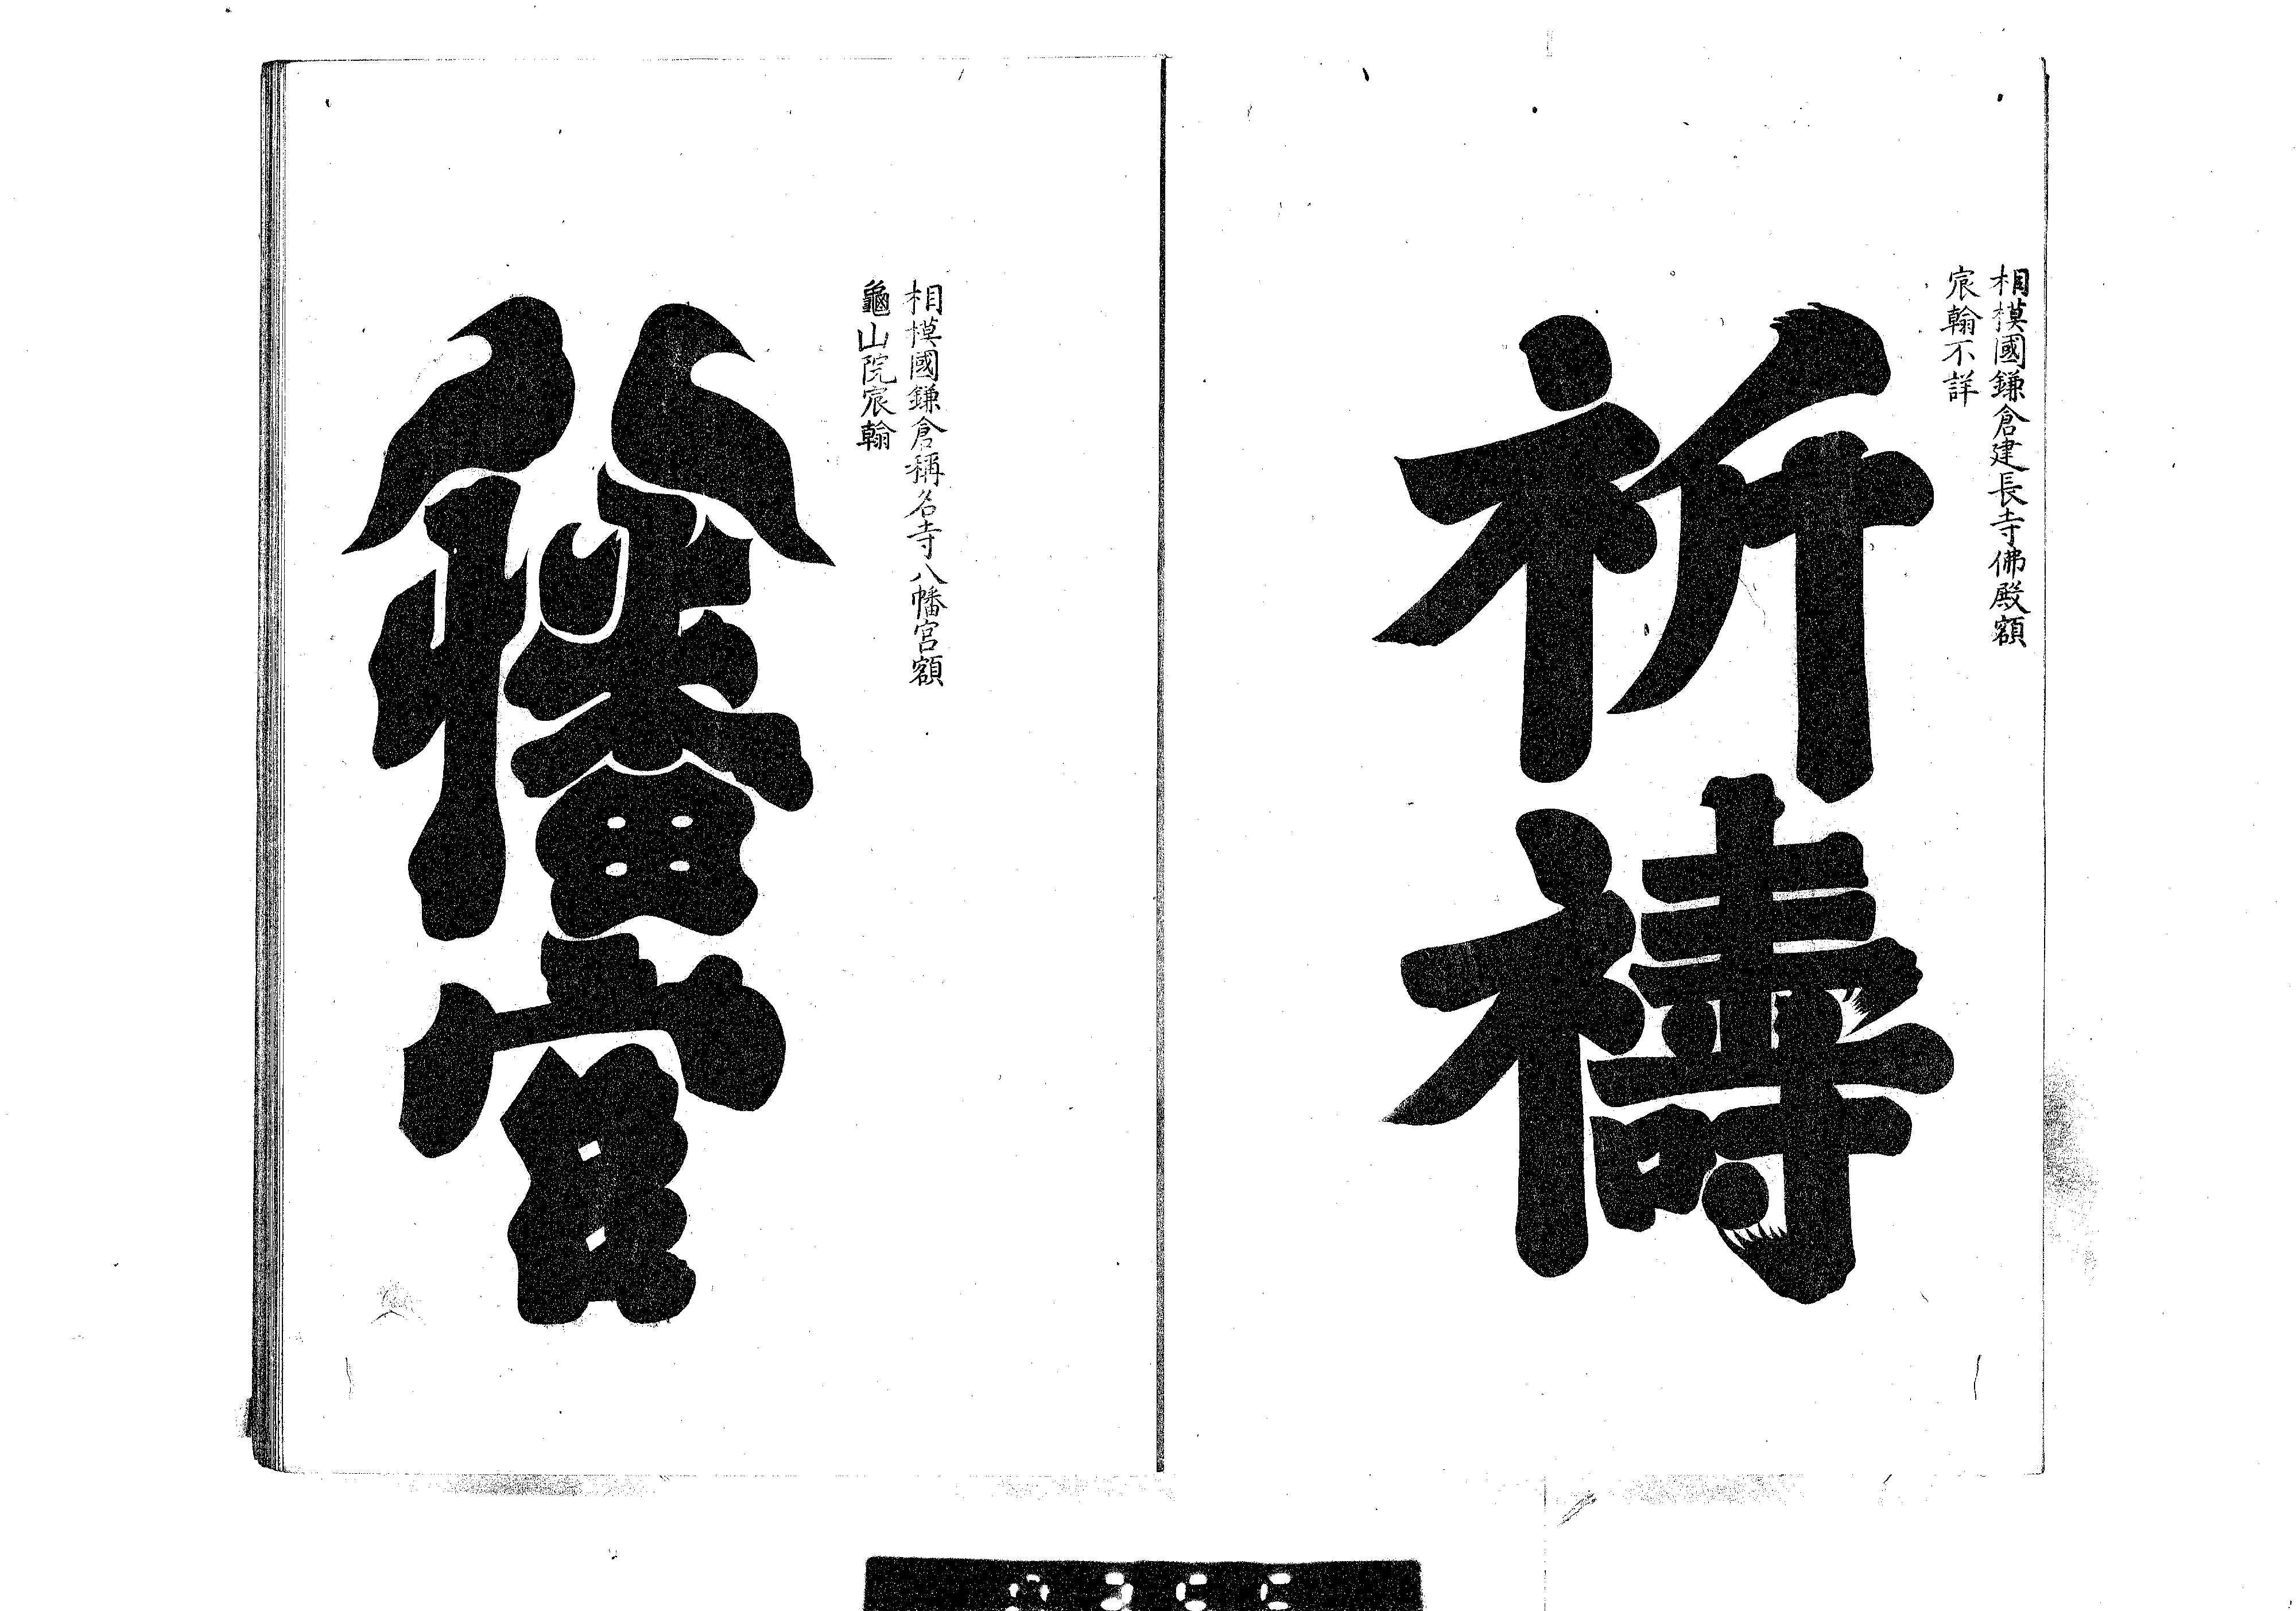 相模國鎌倉建長寺佛殿額
宸翰不詳
祈禱
相模國鎌倉稱名寺八幡宮額
龜山院宸翰
八幡宮